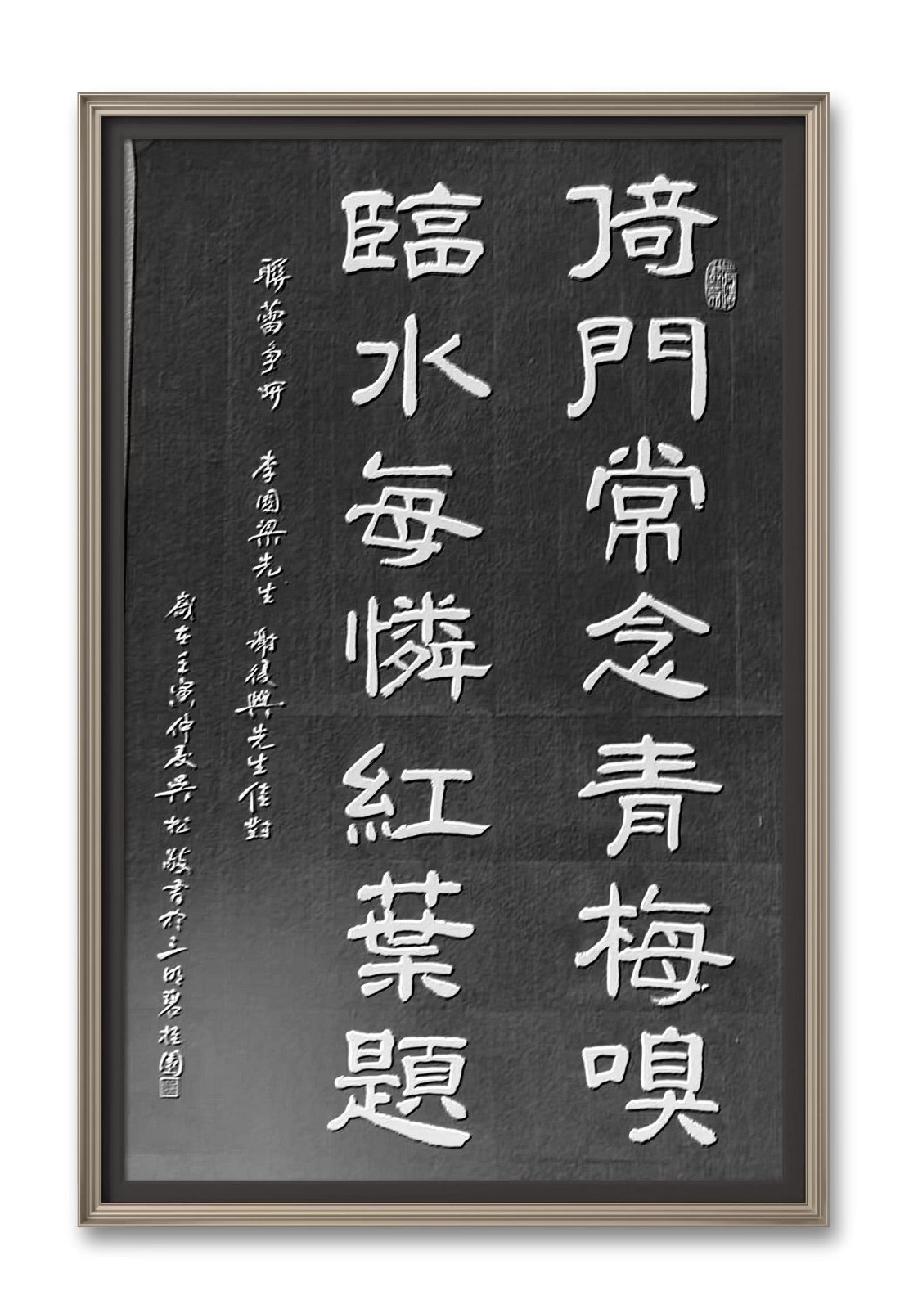 倚門常念青梅嗅
臨水每憐紅葉題
聯蕾爭妍 李國梁先生 謝後興先生佳對
歲在壬寅仲夏吳松敬書於三明碧桂園